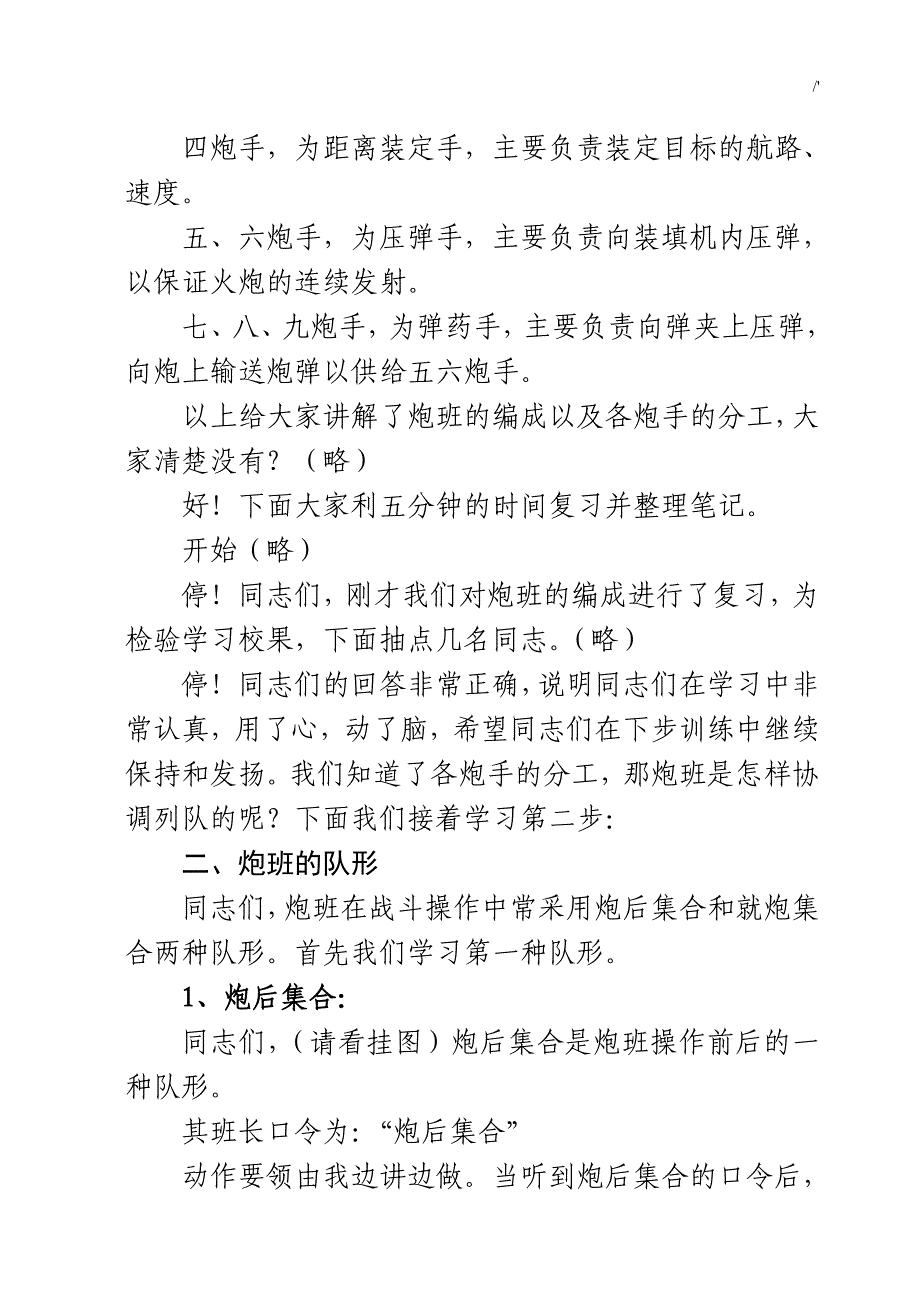 /'
四炮手，为距离装定手，主要负责装定目标的航路、
速度。
五、六炮手，为压弹手，主要负责向装填机内压弹，
以保证火炮的连续发射。
七、八、九炮手，为弹药手，主要负责向弹夹上压弹，
向炮上输送炮弹以供给五六炮手。
以上给大家讲解了炮班的编成以及各炮手的分工，大
家清楚没有？（略）
好！下面大家利五分钟的时间复习并整理笔记。
开始（略）
停！同志们，刚才我们对炮班的编成进行了复习，为
检验学习校果，下面抽点几名同志。（略）
停！同志们的回答非常正确，说明同志们在学习中非
常认真，用了心，动了脑，希望同志们在下步训练中继续
保持和发扬。我们知道了各炮手的分工，那炮班是怎样协
调列队的呢？下面我们接着学习第二步：
二、炮班的队形
同志们，炮班在战斗操作中常采用炮后集合和就炮集
合两种队形。首先我们学习第一种队形。
1、炮后集合：
同志们，（请看挂图）炮后集合是炮班操作前后的一
种队形。
其班长口令为：“炮后集合”
动作要领由我边讲边做。当听到炮后集合的口令后，